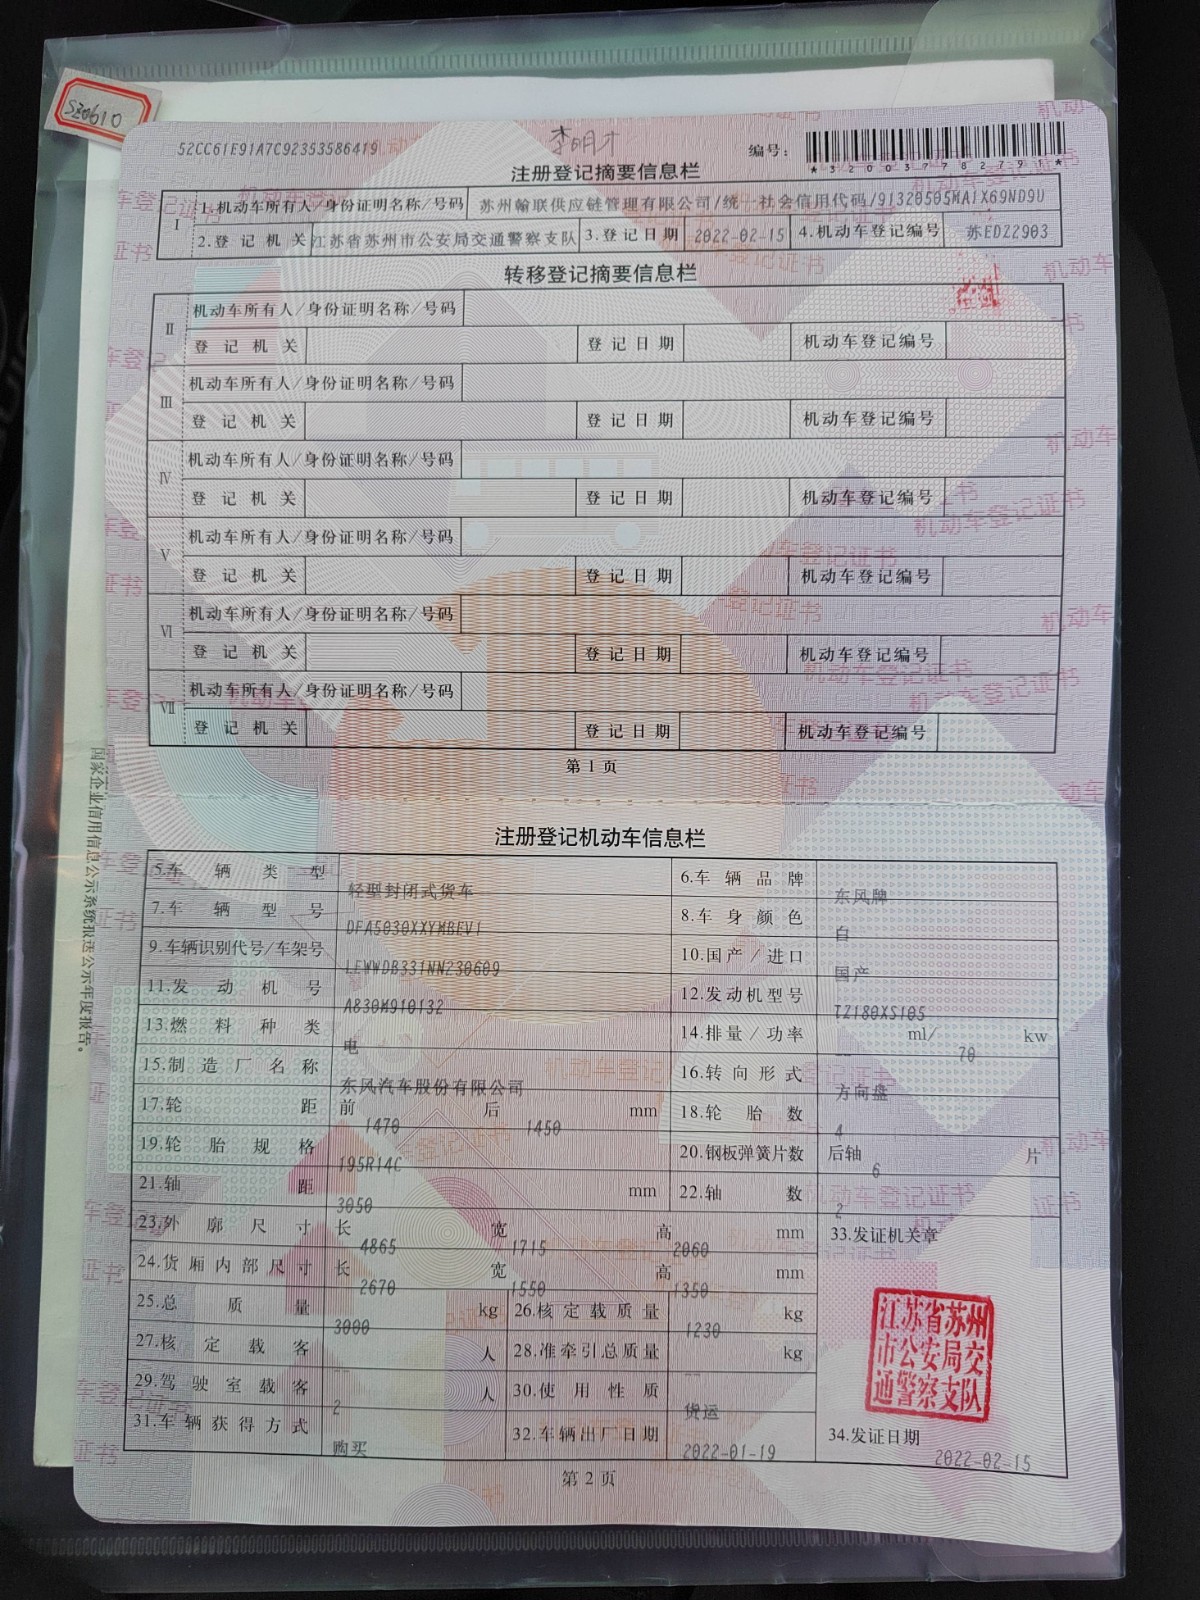 SZ0610
52CC61E91A7C92353586419
李明才
编号：
*320037782791*
注册登记摘要信息栏
Ⅰ
1.机动车所有人/身份证明名称/号码 苏州翰联供应链管理有限公司/统一社会信用代码/91320505MA1X69ND9U
2.登记机关 江苏省苏州市公安局交通警察支队 3.登记日期 2022-02-15 4.机动车登记编号 苏ED22903
转移登记摘要信息栏
Ⅱ
机动车所有人/身份证明名称/号码
登记机关 登记日期 机动车登记编号
Ⅲ
机动车所有人/身份证明名称/号码
登记机关 登记日期 机动车登记编号
Ⅳ
机动车所有人/身份证明名称/号码
登记机关 登记日期 机动车登记编号
Ⅴ
机动车所有人/身份证明名称/号码
登记机关 登记日期 机动车登记编号
Ⅵ
机动车所有人/身份证明名称/号码
登记机关 登记日期 机动车登记编号
Ⅶ
机动车所有人/身份证明名称/号码
登记机关 登记日期 机动车登记编号
第1页
注册登记机动车信息栏
5.车辆类型 轻型封闭式货车 6.车辆品牌 东风牌
7.车辆型号 DFA5030XXYMBEV1 8.车身颜色 白
9.车辆识别代号/车架号 LEWWDB331NN230609 10.国产/进口 国产
11.发动机号 A830M910132 12.发动机型号 TZ180XS105
13.燃料种类 电 14.排量/功率 -- ml/ 70 kw
15.制造厂名称 东风汽车股份有限公司 16.转向形式 方向盘
17.轮距 前 1470 后 1450 mm 18.轮胎数 4
19.轮胎规格 195R14C 20.钢板弹簧片数 后轴 6 片
21.轴距 3050 mm 22.轴数 2
23.外廓尺寸 长 4865 宽 1715 高 2060 mm 33.发证机关章
24.货厢内部尺寸 长 2670 宽 1550 高 1350 mm
25.总质量 3000 kg 26.核定载质量 1230 kg
27.核定载客 -- 人 28.准牵引总质量 -- kg
29.驾驶室载客 2 人 30.使用性质 货运
31.车辆获得方式 购买 32.车辆出厂日期 2022-01-19 34.发证日期 2022-02-15
江苏省苏州
市公安局交
通警察支队
第2页
国家企业信用信息公示系统报送公示年度报告。